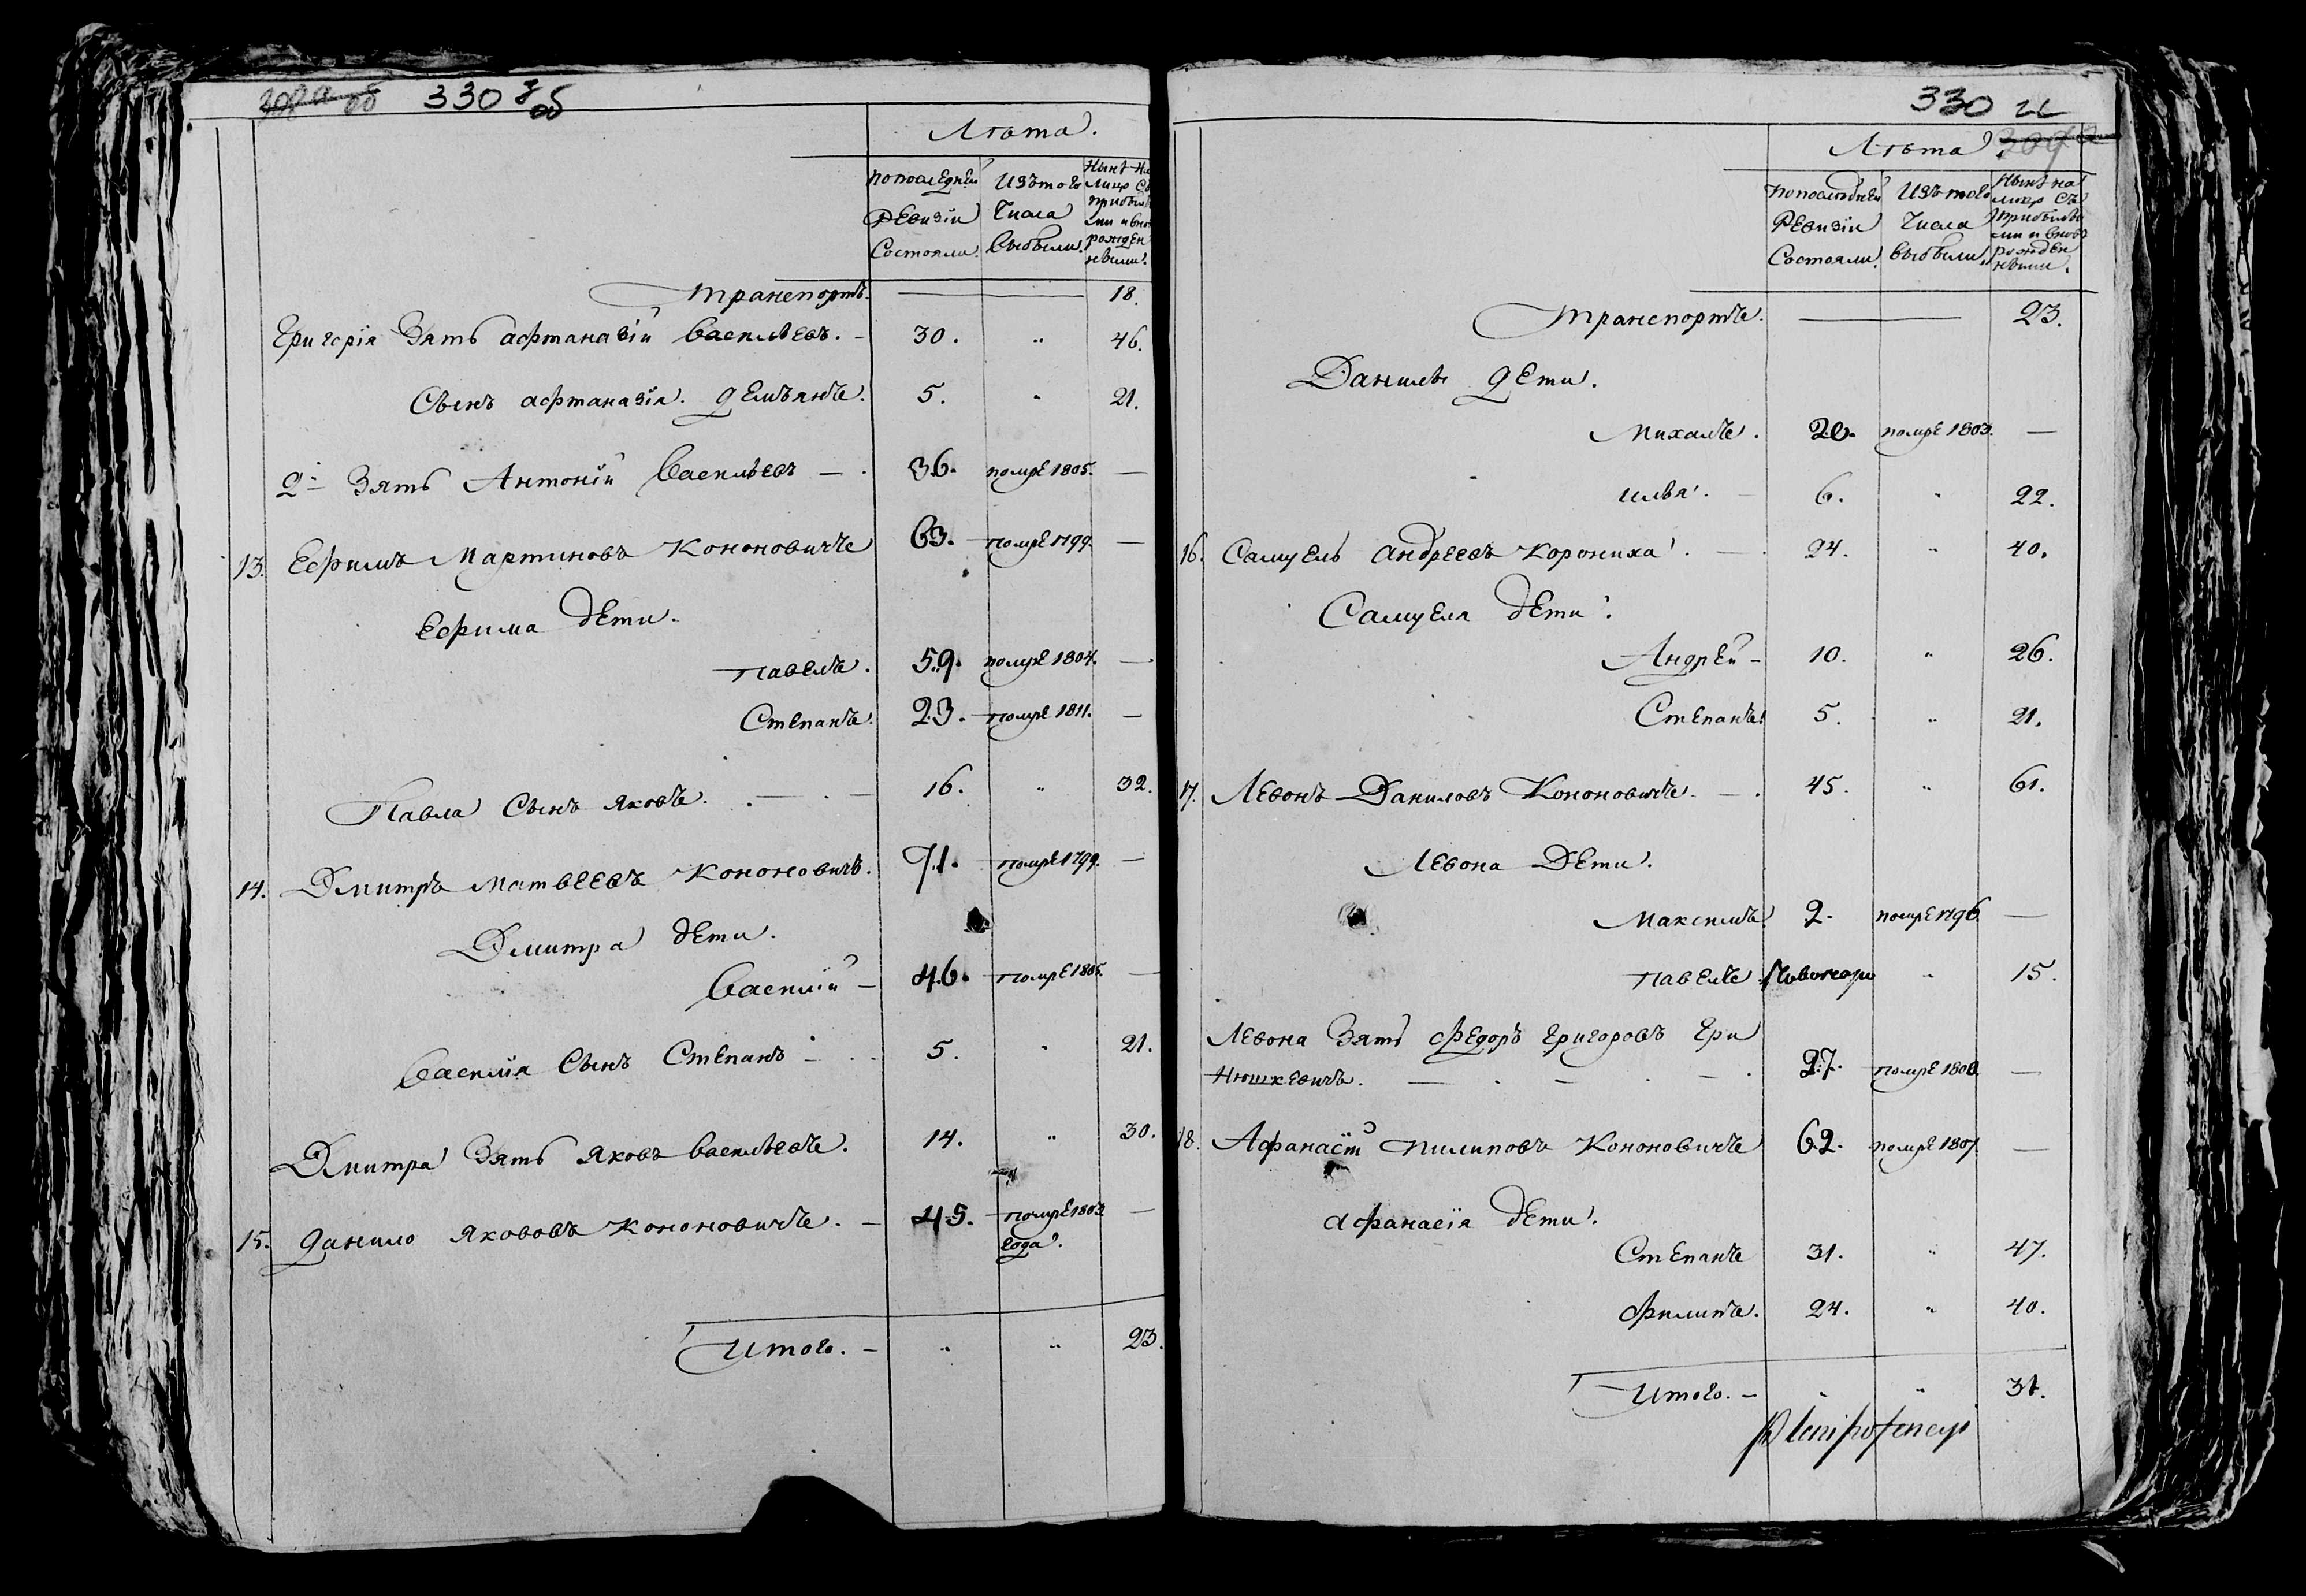 330 з об
Лѣта.
Попоследней Ревизіи Состояли.
Изътого Числа Выбыли.
Нынѣ На лицо Съ прибыл ми и внов рожден ными.
транспортъ. — 18.
Григорія Зять афтаназій Васильевъ. — 30. " 46.
Сынъ афтаназія. демъянъ. 5. " 21.
2й Зять Антоній Васильевъ — 36. помре 1805. —
13. Ефимъ Мартиновъ Кононовичъ 63. помре 1799. —
Ефима дети.
Павелъ. 59. помре 1804. —
Степанъ. 23. помре 1811. —
Павла Сынъ яковъ. — 16. " 32.
14. Дмитръ Матвеевъ Кононовичъ. 71. помре 1799. —
Дмитра дети.
Василій — 46. помре 1805. —
Василія Сынъ Степанъ — 5. " 21.
Дмитра Зять яковъ васильевъ. 14. " 30.
15. данило якововъ Кононовичъ. — 45. помре 1803 года. —
Итого. — " " 23.
330 и
Лѣта
Попоследней Ревизіи Состояли.
Изътого Числа выбыли.
Нынѣ на лицо Съ Прибылы ми и вновь рожден ными.
Транспортъ. — 23.
Данилы дети.
Михалъ. 20. помре 1803. —
илья. — 6. " 22.
16. Самуель андреевъ Корониха. — 24. " 40.
Самуеля дети.
Андрей — 10. " 26.
Степанъ. 5. " 21.
17. Левонъ Даниловъ Кононовичъ. — 45. " 61.
Левона Дети.
Максимъ. 2. помре 1796 —
Павелъ Новонаро " 15.
Левона Зять Федоръ Григоровъ Гри
нюшкевичъ. — 27. помре 1808. —
18. Афанасій Пилиповъ Кононовичъ 62. помре 1807. —
афанасія дети.
Степанъ 31. " 47.
Филипъ. 24. " 40.
Итого. — " " 31.